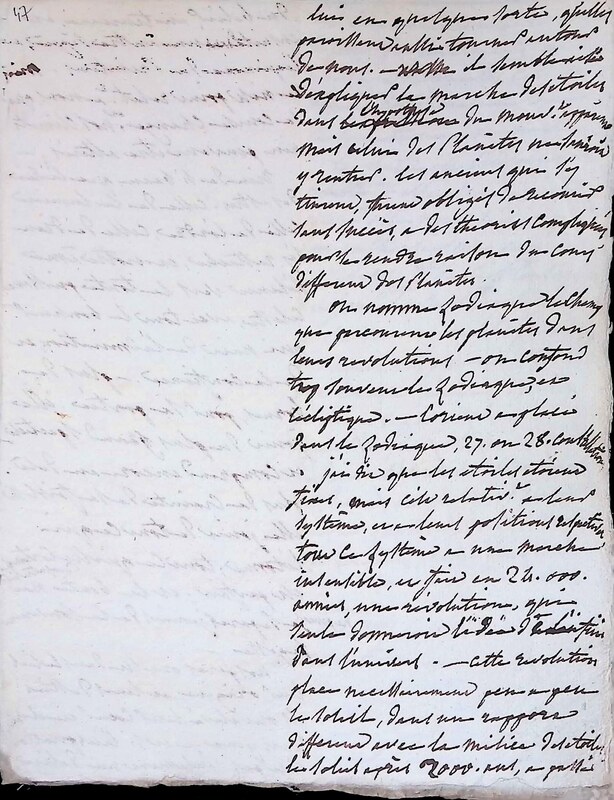 47
lui en quelque sorte, qu'elles
paroissent elles tourner autour
de nous. — il semble aisé
d'expliquer la marche des étoiles
dans du mouv.t apparent
mais celui des Planètes ne
y rentrer. les anciens qui s'y
tinrent, furent obligés de recourir
sans succès, a des théories compliquées
pour se rendre raison du cours
different des Planètes.
On nomme Zodiaque le champ
que parcourent les planètes dans
leurs revolutions — on confond
trop souvent le Zodiaque, et
l'écliptique. — L'orient a placé
dans le Zodiaque, 27. ou 28. constellations
j'ai dit que les étoiles étoient
fixes, mais cela relativ.t a leur
système, et a leurs positions respectives
tout ce système a une marche
insensible, et fait en 24.000.
années, une révolution, qui
seule donneroit l'idée
dans l'univers. — cette revolution
place necessairement peu a peu
le soleil, dans un rapport
different avec la milice des étoiles
le soleil après 2000. ans, a passé